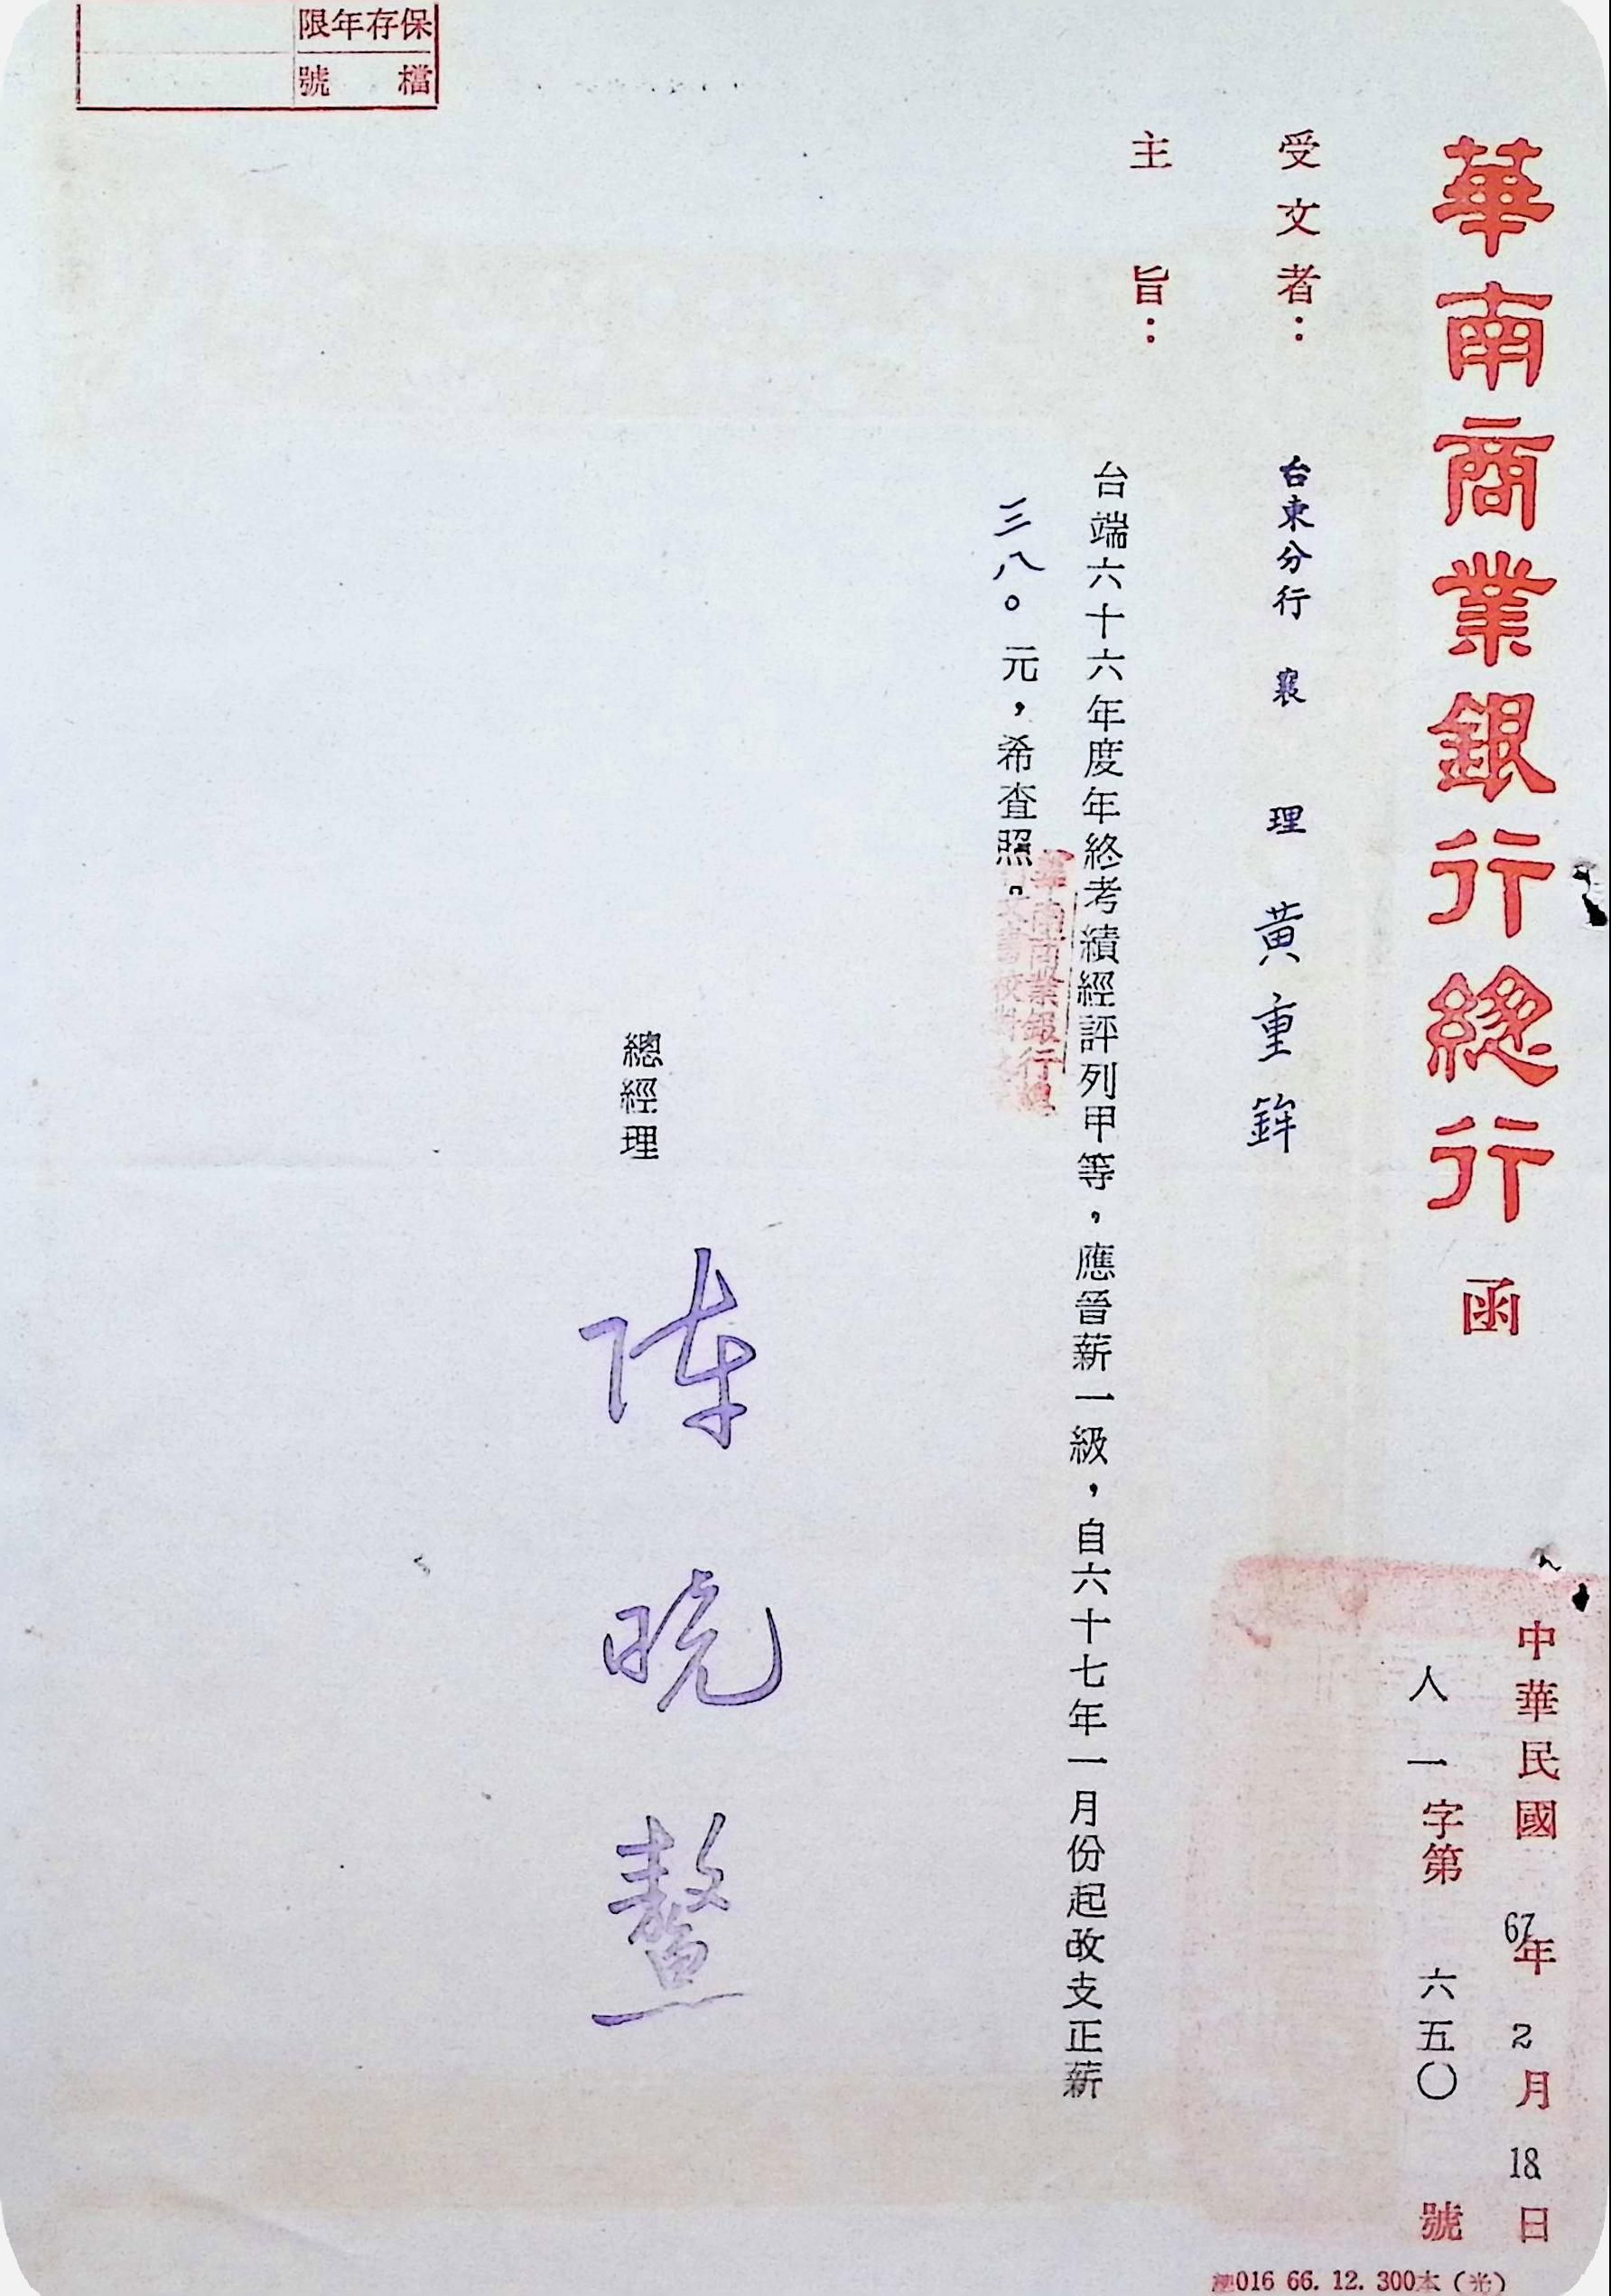 華南商業銀行總行 函
中華民國67年2月18日
人一字第六五〇號
受文者：台東分行 襄理 黃重鉾
主旨：
台端六十六年度年終考績經評列甲等，應晉薪一級，自六十七年一月份起改支正薪
三八〇元，希查照。
華南商業銀行總
總經理 陳晓鰲
保存年限
檔號
總016 66. 12. 300本（光）